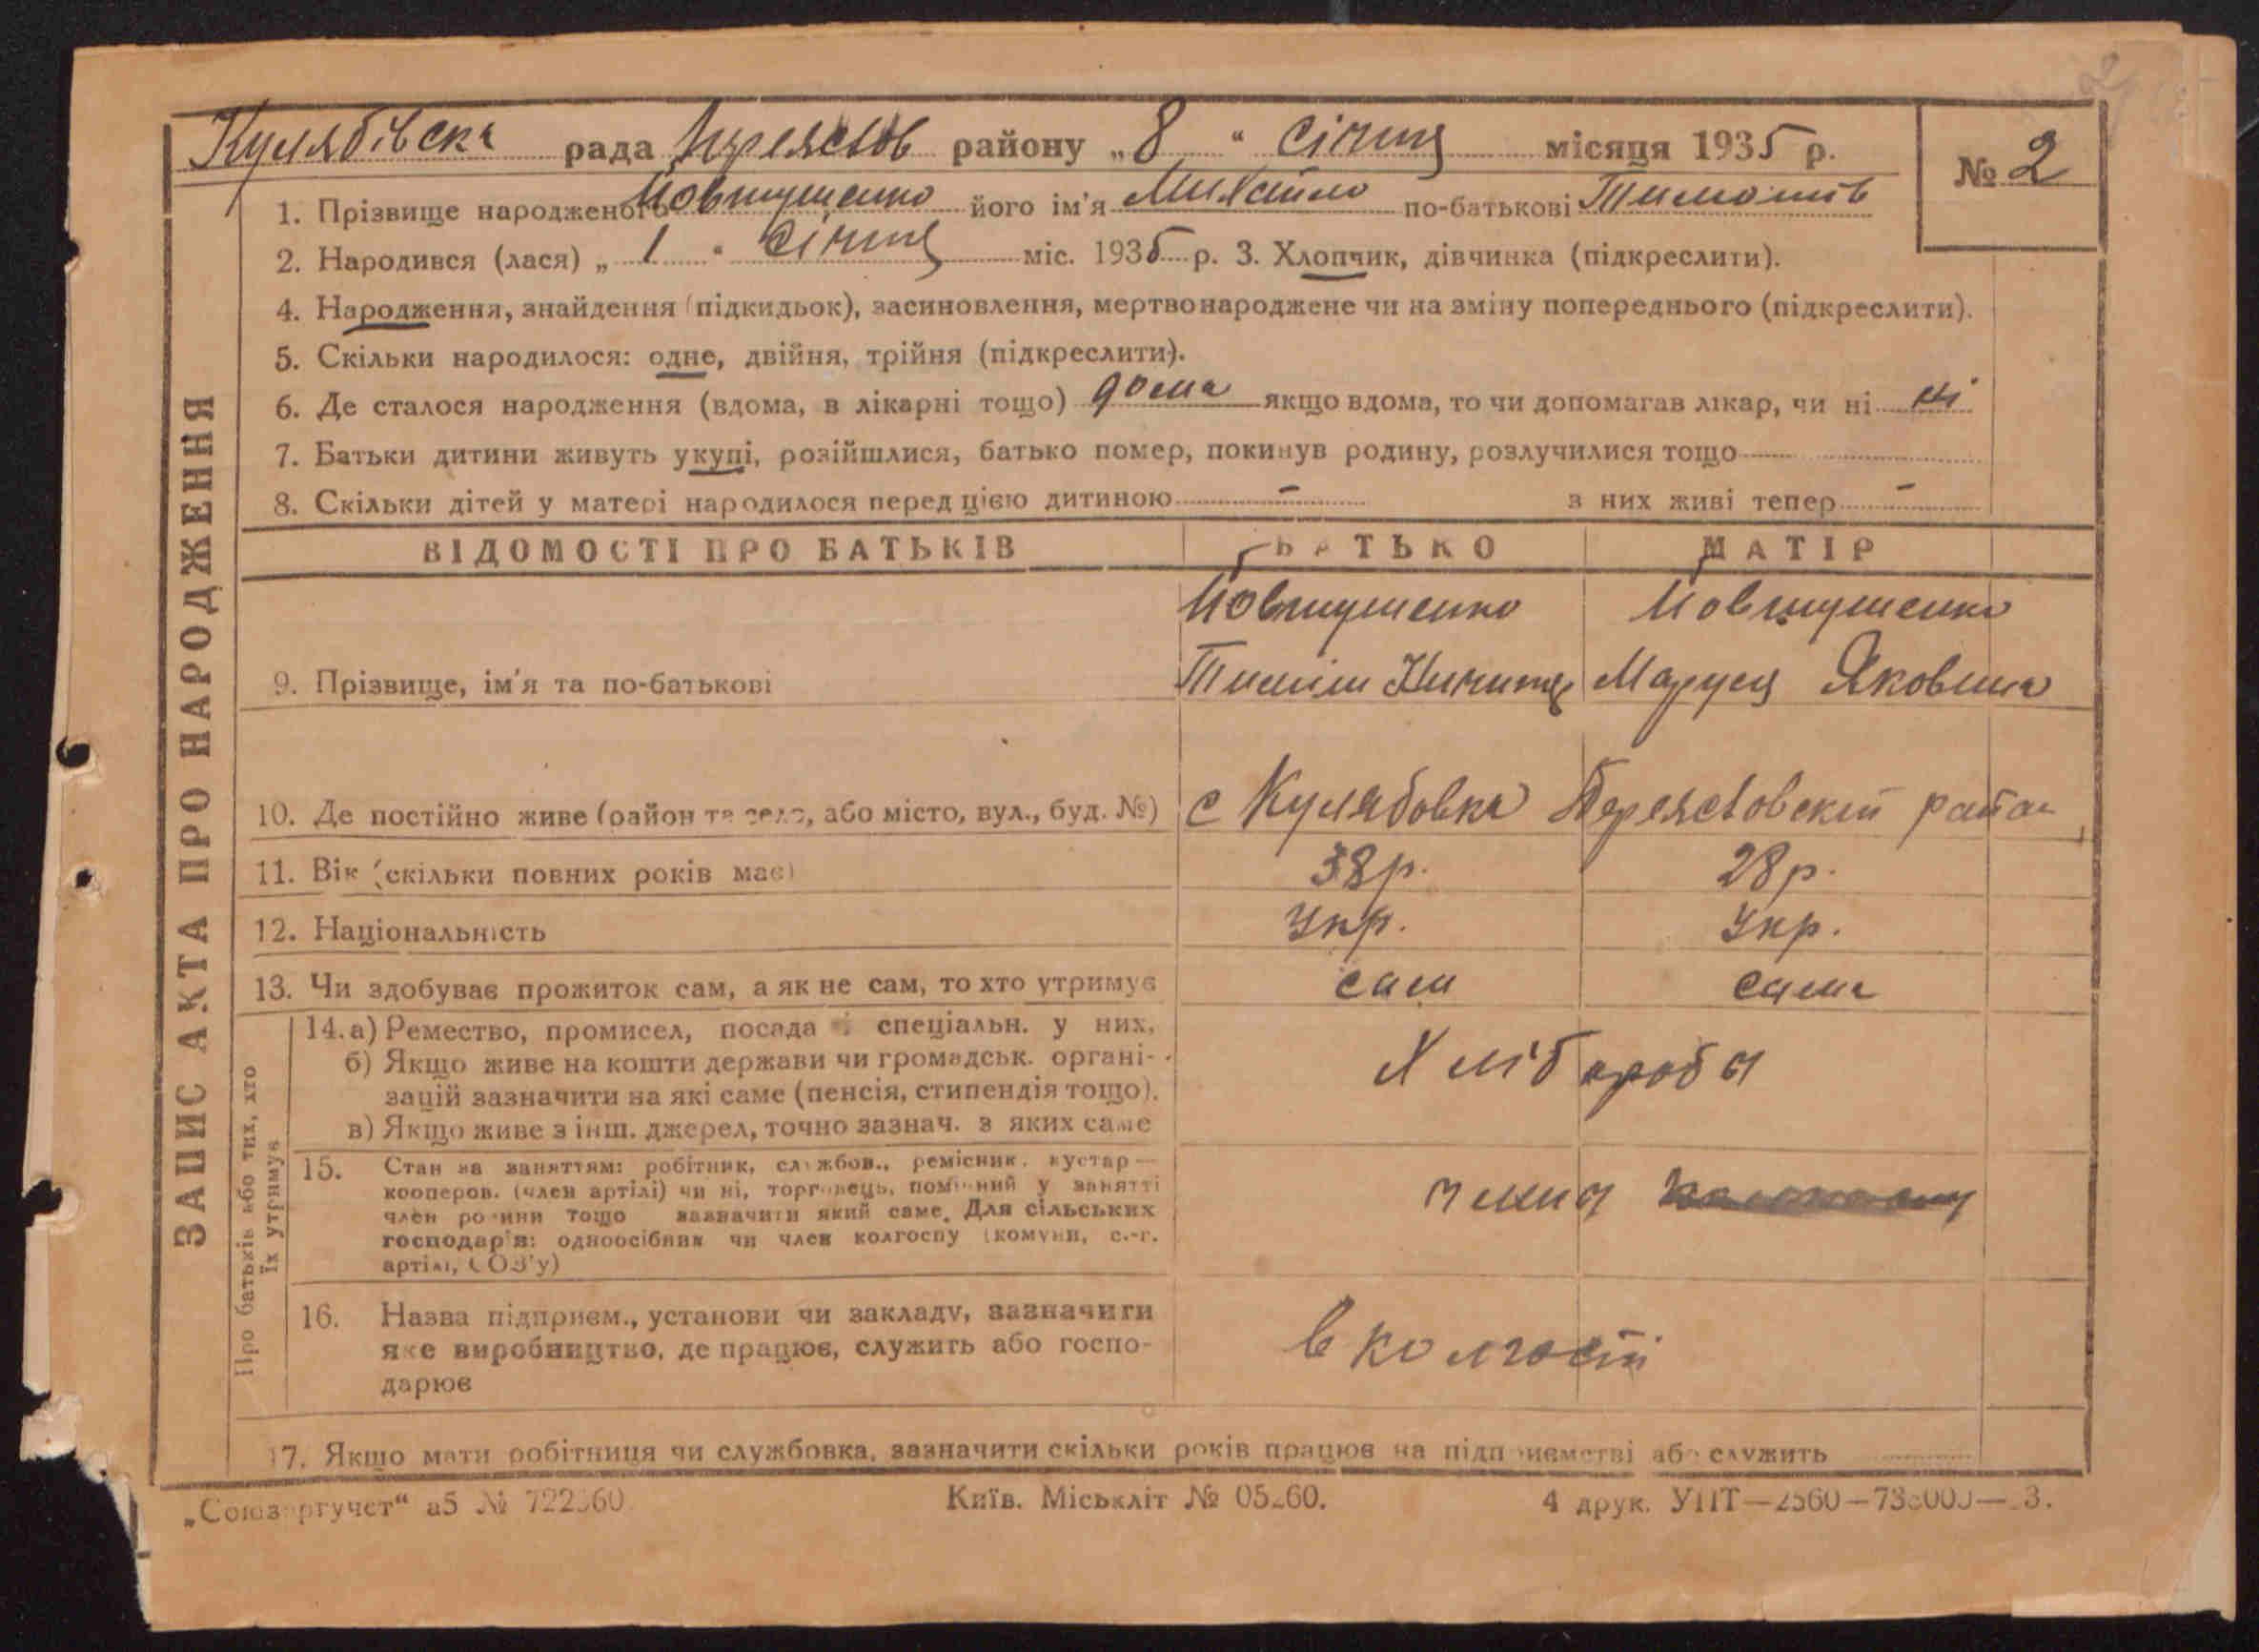 Кулябівска рада району „8“ січня місяця 1935 р.
№ 2
1. Прізвище народженого Йовтушенко його ім'я Михайло по-батькові
2. Народився (лася) „1“ січня міс. 1935 р. 3. Хлопчик, дівчинка (підкреслити).
4. Народження, знайдення (підкидьок), засиновлення, мертвонароджене чи на зміну попереднього (підкреслити).
5. Скільки народилося: одне, двійня, трійня (підкреслити).
6. Де сталося народження (вдома, в лікарні тощо) дома якщо вдома, то чи допомагав лікар, чи ні ні
7. Батьки дитини живуть укупі, розійшлися, батько помер, покинув родину, розлучилися тощо
8. Скільки дітей у матері народилося перед цією дитиною – з них живі тепер –
ЗАПИС АКТА ПРО НАРОДЖЕННЯ
ВІДОМОСТІ ПРО БАТЬКІВ БАТЬКО МАТІР
Йовтушенко Йовтушенко
9. Прізвище, ім'я та по-батькові Тиміш Маруся Яковлина
10. Де постійно живе (район та село, або місто, вул., буд. №) с Кулябовка район
11. Вік (скільки повних років має) 38 р. 28 р.
12. Національність Укр. Укр.
13. Чи здобуває прожиток сам, а як не сам, то хто утримує сам сама
Про батьків або тих, хто їх утримує
14. а) Ремество, промисел, посада і спеціальн. у них,
б) Якщо живе на кошти держави чи громадськ. органі-
зацій зазначити на які саме (пенсія, стипендія тощо).
в) Якщо живе з інш. джерел, точно зазнач. з яких саме
Хлібороби
15. Стан за заняттям: робітник, службов., ремісник, кустар—
кооперов. (член артілі) чи ні, торговець, помічний у занятті
член родини тощо зазначити який саме. Для сільських
господарів: одноосібник чи член колгоспу (комуни, с.-г.
артілі, СОЗ'у)
члени
16. Назва підприєм., установи чи закладу, зазначити
яке виробництво, де працює, служить або госпо-
дарює
в колгоспі
17. Якщо мати робітниця чи службовка, зазначити скільки років працює на підприємстві або служить
„Союзоргучет“ а5 Київ. Міськліт 4 друк. УПТ—2560—